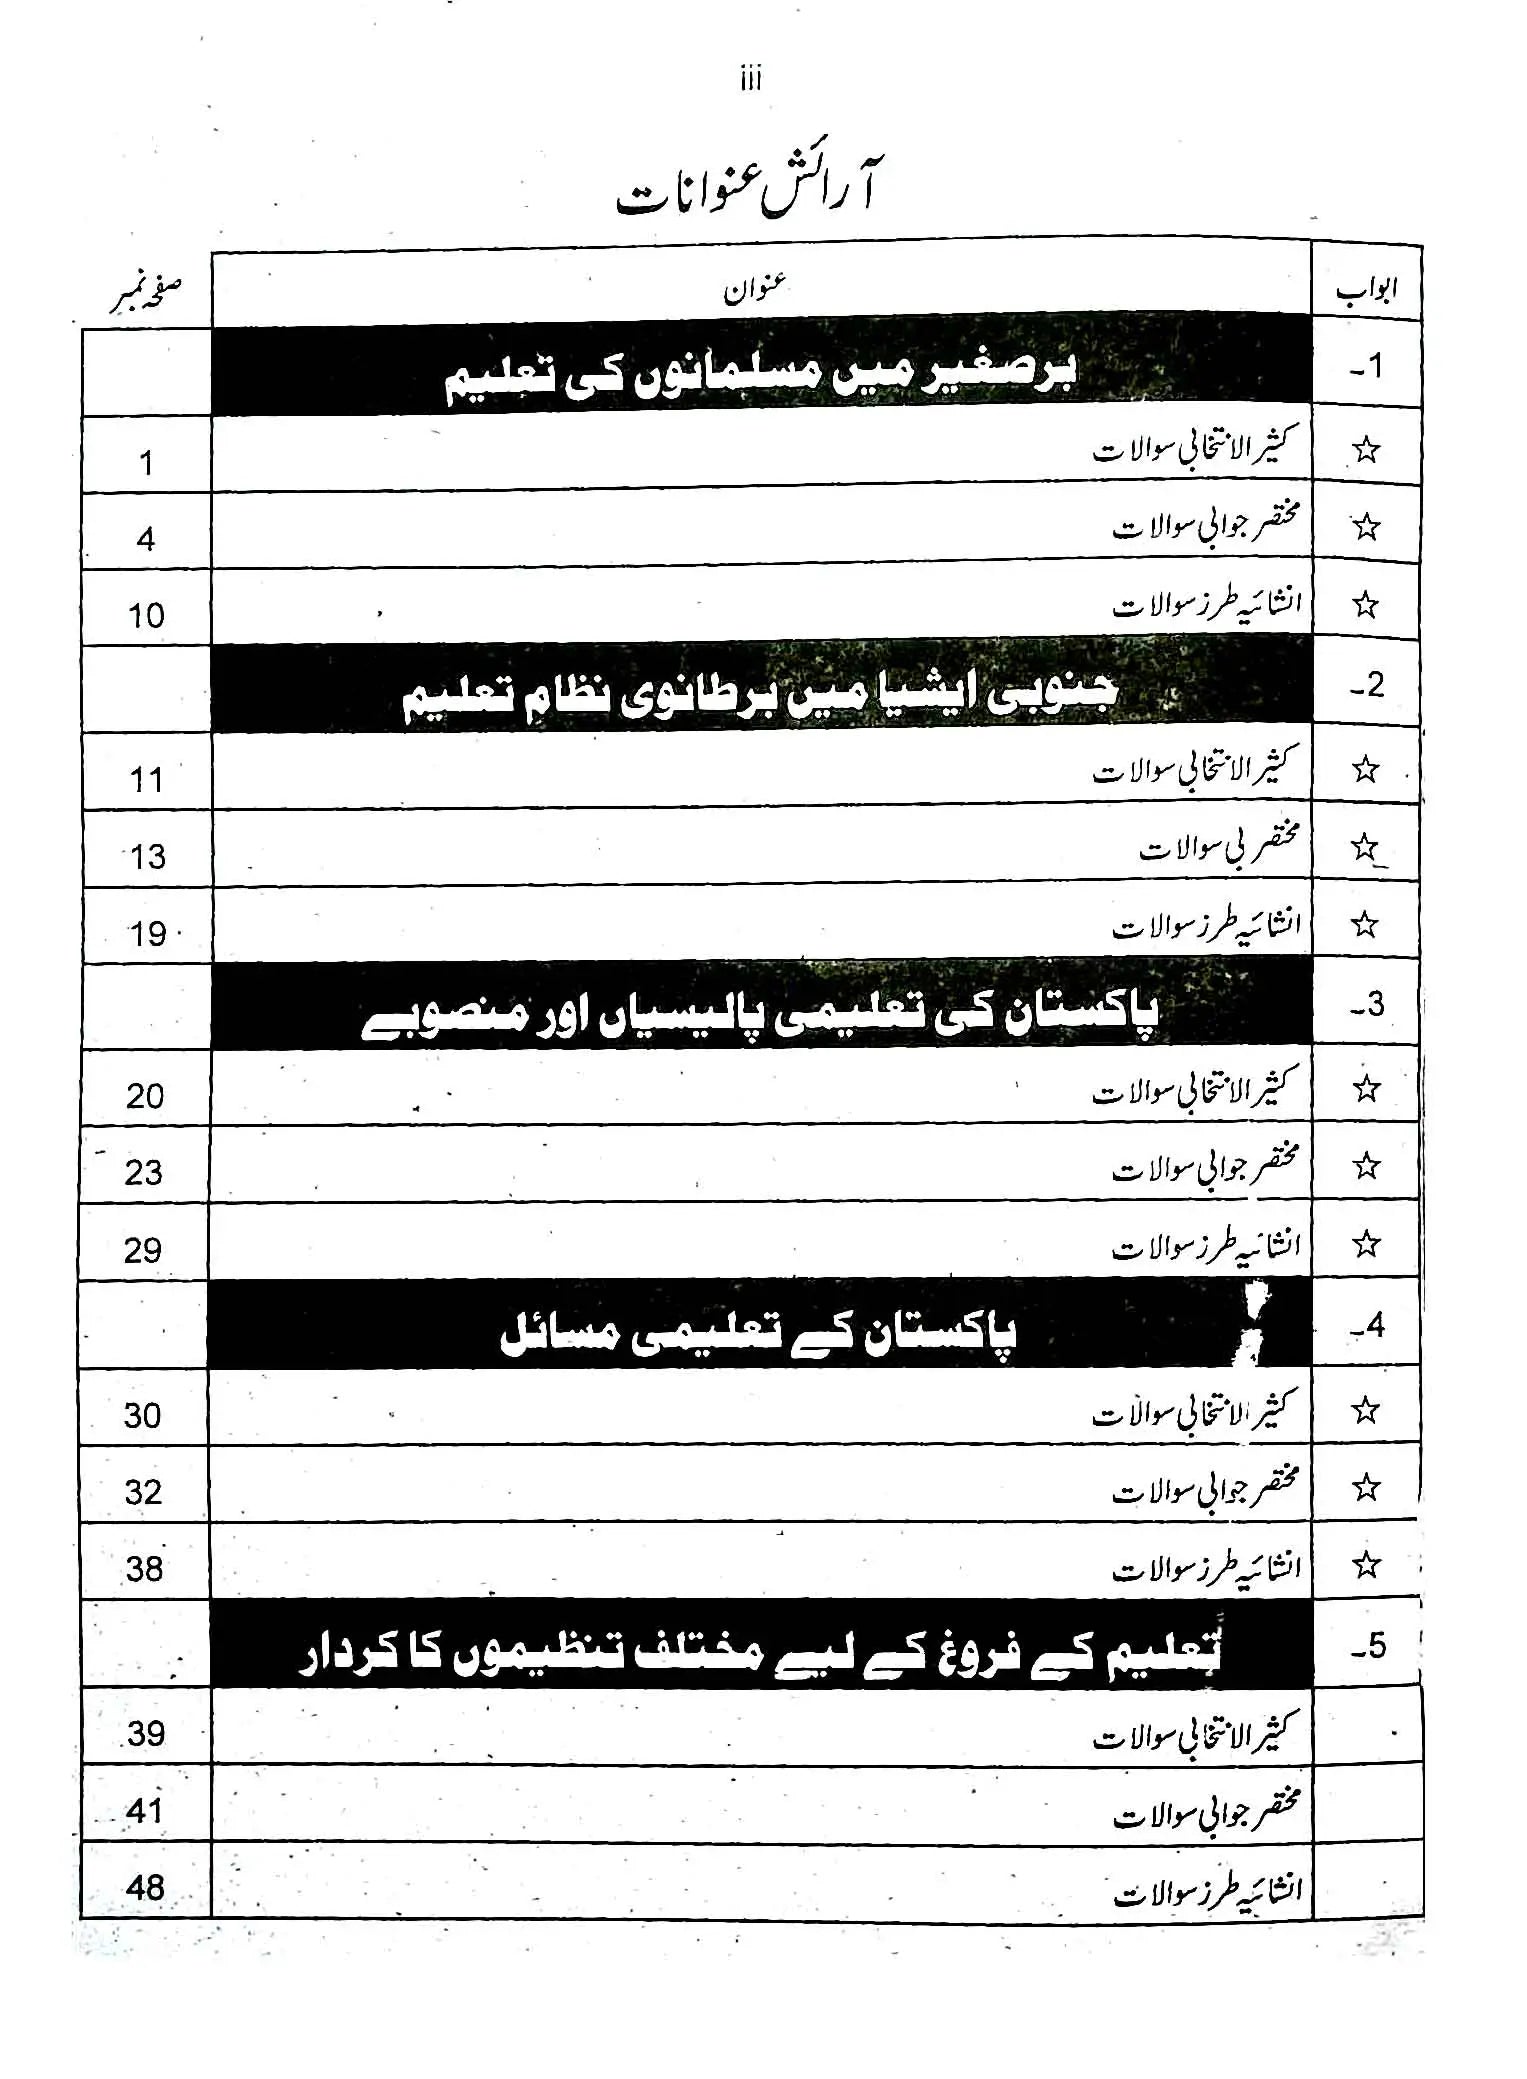 iii
آرائش عنوانات
ابواب عنوان صفحہ نمبر
1۔ برصغیر میں مسلمانوں کی تعلیم
☆ کثیر الانتخابی سوالات 1
☆ مختصر جوابی سوالات 4
☆ انشائیہ طرز سوالات 10
2۔ جنوبی ایشیا میں برطانوی نظامِ تعلیم
☆ کثیر الانتخابی سوالات 11
☆ مختصر بی سوالات 13
☆ انشائیہ طرز سوالات 19
3۔ پاکستان کی تعلیمی پالیسیاں اور منصوبے
☆ کثیر الانتخابی سوالات 20
☆ مختصر جوابی سوالات 23
☆ انشائیہ طرز سوالات 29
4۔ پاکستان کے تعلیمی مسائل
☆ کثیر الانتخابی سوالات 30
☆ مختصر جوابی سوالات 32
☆ انشائیہ طرز سوالات 38
5۔ تعلیم کے فروغ کے لیے مختلف تنظیموں کا کردار
کثیر الانتخابی سوالات 39
مختصر جوابی سوالات 41
انشائیہ طرز سوالات 48